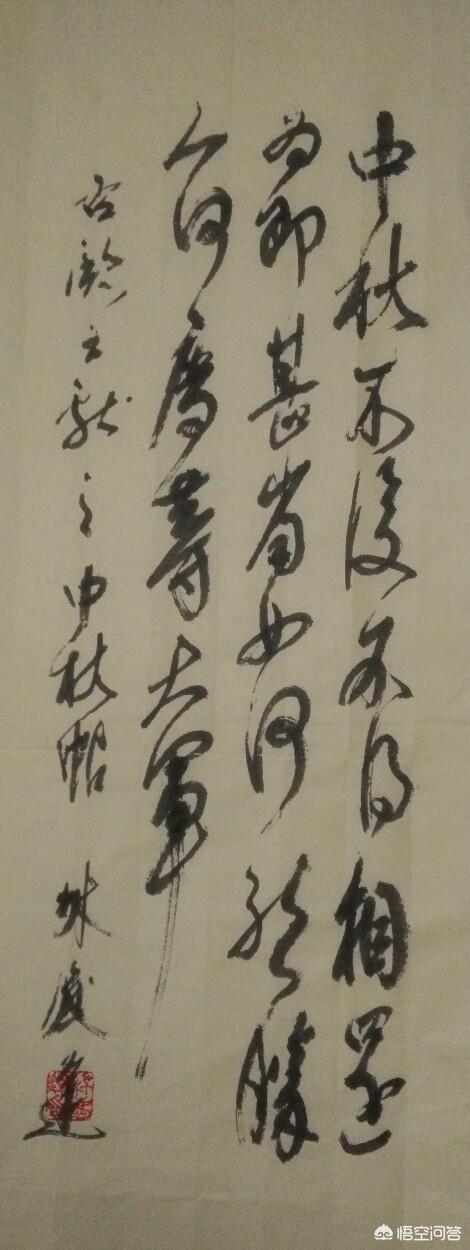 中秋不復不得相還
為即甚省如何然勝
人何慶等大軍
臨王献之中秋帖
悟空问答